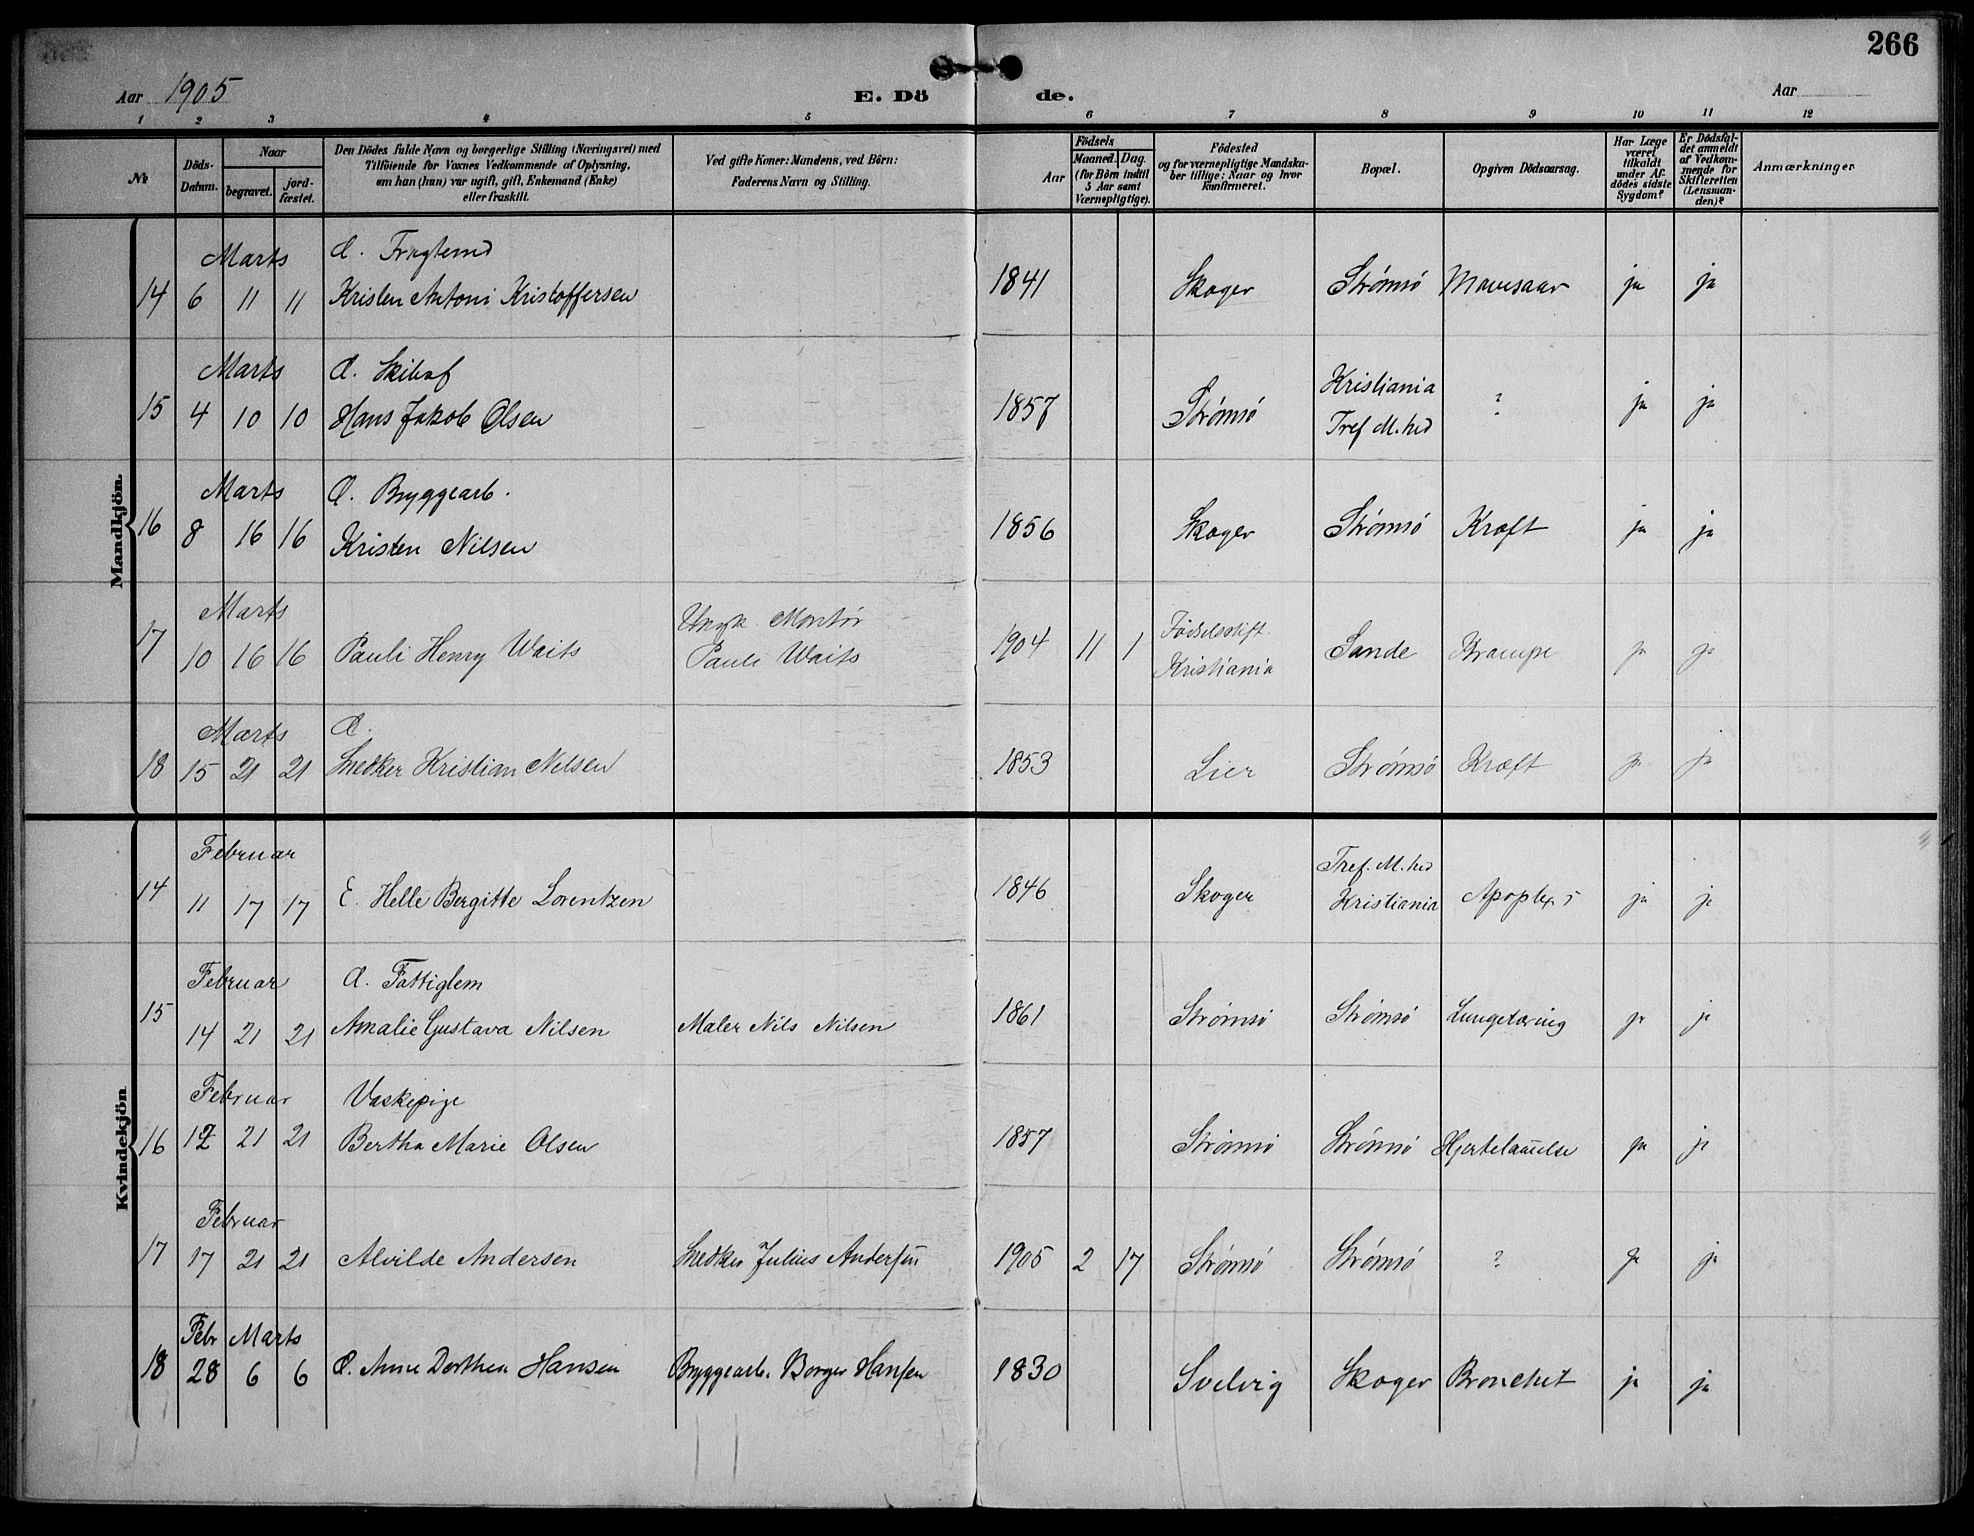 266
Aar 1905
E. Döde.
Aar
1 2 3 4 5 6 7 8 9 10 11 12
No
Döds-Datum.
Naar
begravet.
jord-fæstet.
Den Dödes fulde Navn og borgerlige Stilling (Næringsvei) med
Tilföiende for Voxnes Vedkommende af Oplysning,
om han (hun) var ugift, gift, Enkemand (Enke)
eller fraskilt.
Ved gifte Koner: Mandens, ved Börn:
Faderens Navn og Stilling.
Aar
Födsels
Maaned. Dag.
(for Börn indtil
5 Aar samt
Værnepligtige).
Födested
og for værnepligtige Mandska-
ber tillige: Naar og hvor
konfirmeret.
Bopæl.
Opgiven Dödsaarsag.
Har Læge
været
tilkaldt
under Af-
dödes sidste
Sygdom?
Er Dödsfal-
det anmeldt
af Vedkom-
mende for
Skifteretten
(Lensman-
den)?
Anmærkninger
Mandkjön.
Marts
14 6 11 11 Kristen Antoni Kristoffersen 1841 Skoger Strømsø Mavesaar ja ja
Marts
15 4 10 10 Hans Jakob Olsen 1857 Strømsø Kristiania
Tref M.hed ? ja ja
Marts Bryggearb.
16 8 16 16 Kristen Nilsen 1856 Skoger Strømsø Kræft ja ja
Marts Montør
17 10 16 16 Pauli Henry Waits Pauli Waits 1904 11 1 Fødselsstift.
Kristiania Sande Krampe ja ja
Marts
18 15 21 21 Snedker Kristian Nilsen 1853 Lier Strømsø Kræft ja ja
Kvindekjön
Februar
14 11 17 17 E. Helle Bergitte Lorentzen 1846 Skoger Tref. M.hed
Kristiania Apoplexi ja ja
Februar Fattiglem
15 14 21 21 Amalie Gustava Nilsen Maler Nils Nilsen 1861 Strømsø Strømsø Lungetæring ja ja
Februar Vaskepige
16 12 21 21 Bertha Marie Olsen 1857 Strømsø Strømsø Hjertelam̅else ja ja
Februar
17 17 21 21 Alvilde Andersen Snedker Julius Andersen 1905 2 17 Strømsø Strømsø ? ja ja
Febr Marts
18 28 6 6 Anne Dorthea Hansen Bryggearb. Borger Hansen 1830 Svelvig Skoger Bronchit ja ja